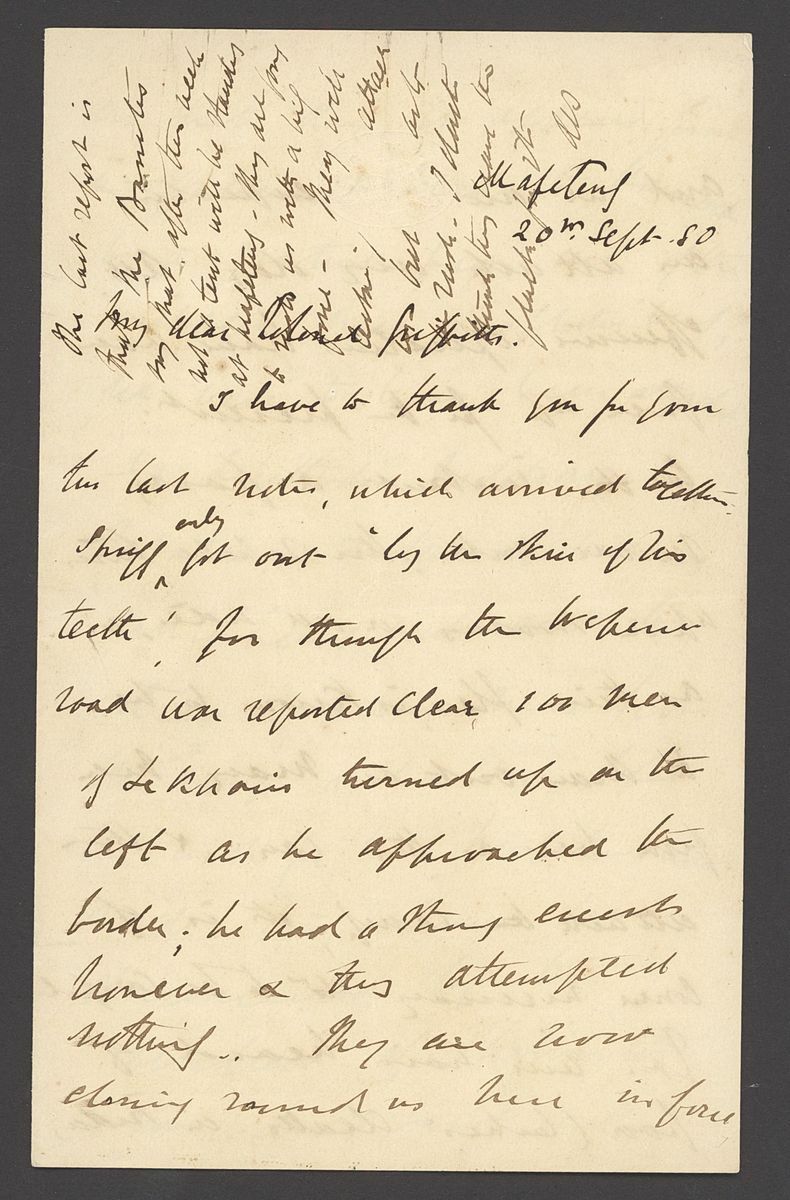 Mafeteng
20th Sept. 80
My dear Colonel Griffith.
I have to thank you for your
two last notes, which arrived together.
Spriggs only got out "by the skin of his
teeth", for though the Wepener
road was reported clear, 100 men
of Lekhoius turned up on the
left as he approached the
border; he had a strong escort
however & they attempted
nothing.. They are now
closing round us here in force,
The last report is
that the Basutos
say that after this week
not a tent will be standing
at Mafeteng - They are
to rush us with a big
They will attack
but
rush - I don't
think they have the
pluck